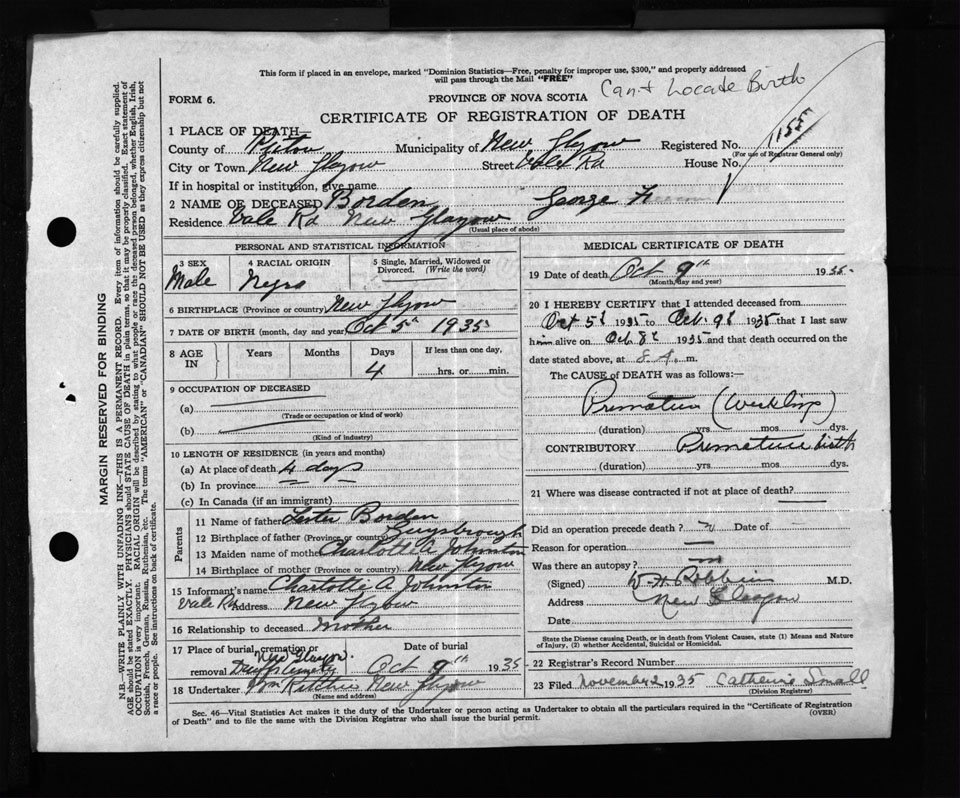 This form if placed in an envelope, marked "Dominion Statistics—Free, penalty for improper use, $300," and properly addressed
will pass through the Mail "FREE"
Can't Locate Birth
FORM 6.
PROVINCE OF NOVA SCOTIA
CERTIFICATE OF REGISTRATION OF DEATH
1155
1 PLACE OF DEATH—
County of Pictou Municipality of New Glasgow Registered No.
(For use of Registrar General only)
City or Town New Glasgow Street Vale Rd House No.
If in hospital or institution, give name
2 NAME OF DECEASED Borden George
Residence Vale Rd New Glasgow
(Usual place of abode)
PERSONAL AND STATISTICAL INFORMATION
3 SEX 4 RACIAL ORIGIN 5 Single, Married, Widowed or Divorced. (Write the word)
Male Negro
6 BIRTHPLACE (Province or country) New Glasgow
7 DATE OF BIRTH (month, day and year) Oct 5th 1935
8 AGE IN Years Months Days If less than one day,
4 hrs. or min.
9 OCCUPATION OF DECEASED
(a)
(Trade or occupation or kind of work)
(b)
(Kind of industry)
10 LENGTH OF RESIDENCE (in years and months)
(a) At place of death 4 days
(b) In province
(c) In Canada (if an immigrant)
Parents
11 Name of father Lester Borden
12 Birthplace of father Guysborough
13 Maiden name of mother Charlotte A Johnston
14 Birthplace of mother New Glasgow
15 Informant's name Charlotte A. Johnston
Vale Rd Address New Glasgow
16 Relationship to deceased Mother
17 Place of burial, cremation or removal Date of burial
New Glasgow Oct 9th 1935
18 Undertaker Ritchie New Glasgow
(Name and address)
MEDICAL CERTIFICATE OF DEATH
19 Date of death Oct 9th 1935
(Month, day and year)
20 I HEREBY CERTIFY that I attended deceased from
Oct 5th 1935 to Oct. 9th 1935 that I last saw
h alive on Oct 8th 1935 and that death occurred on the
date stated above, at 8 A. m.
The CAUSE of DEATH was as follows:—
Premature
(duration) yrs mos dys.
CONTRIBUTORY Premature birth
(duration) yrs. mos. dys.
21 Where was disease contracted if not at place of death?
Did an operation precede death? Date of
Reason for operation
Was there an autopsy? no
(Signed) Robbins M.D.
Address New Glasgow
Date
State the Disease causing Death, or in death from Violent Causes, state (1) Means and Nature
of Injury, (2) whether Accidental, Suicidal or Homicidal.
22 Registrar's Record Number
23 Filed November 2 1935 Catherine Small
(Division Registrar)
Sec. 46—Vital Statistics Act makes it the duty of the Undertaker or person acting as Undertaker to obtain all the particulars required in the "Certificate of Registration
of Death" and to file the same with the Division Registrar who shall issue the burial permit.
(OVER)
MARGIN RESERVED FOR BINDING
N.B.—WRITE PLAINLY WITH UNFADING INK—THIS IS A PERMANENT RECORD. Every item of information should be carefully supplied.
AGE should be stated EXACTLY. PHYSICIANS should STATE CAUSE OF DEATH in plain terms, so that it may be properly classified. Exact statement of
OCCUPATION is very important. RACIAL ORIGIN will be described by stating to what people or race the deceased person belonged, whether English, Irish,
Scottish, French, German, Russian, Ruthenian, etc. The terms "AMERICAN" or "CANADIAN" SHOULD NOT BE USED as they express citizenship but not
a race or people. See instructions on back of certificate.